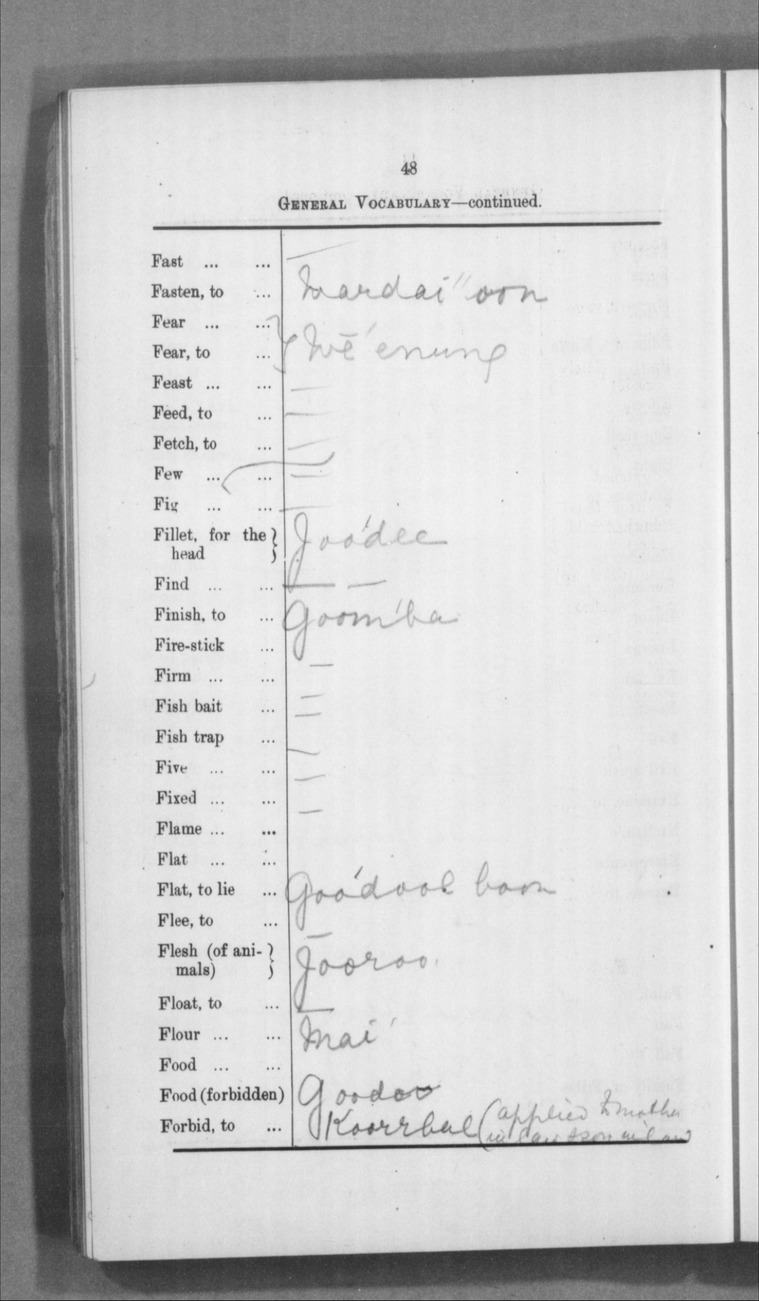 48
GENERAL VOCABULARY—continued.
Fast ... ... —
Fasten, to ... Wardai''oon
Fear ... ... }
Fear, to ... } Wē'enung
Feast ... ... —
Feed, to ... —
Fetch, to ... —
Few ... ... —
Fig ... ... —
Fillet, for the } Joo'dee
head }
Find ... ... — —
Finish, to ... Goom'ba
Fire-stick ...
Firm ... ... —
Fish bait ... —
Fish trap ... —
Five ... ... —
Fixed ... ... —
Flame ... ... —
Flat ... ...
Flat, to lie ... Goo'dool boon
Flee, to ... —
Flesh (of ani- } Jooroo
mals) }
Float, to ... —
Flour ... ... Mai'
Food ... ...
Food (forbidden) Goodoo
Forbid, to ... Koorrbul (applied to mother
in law & son in law